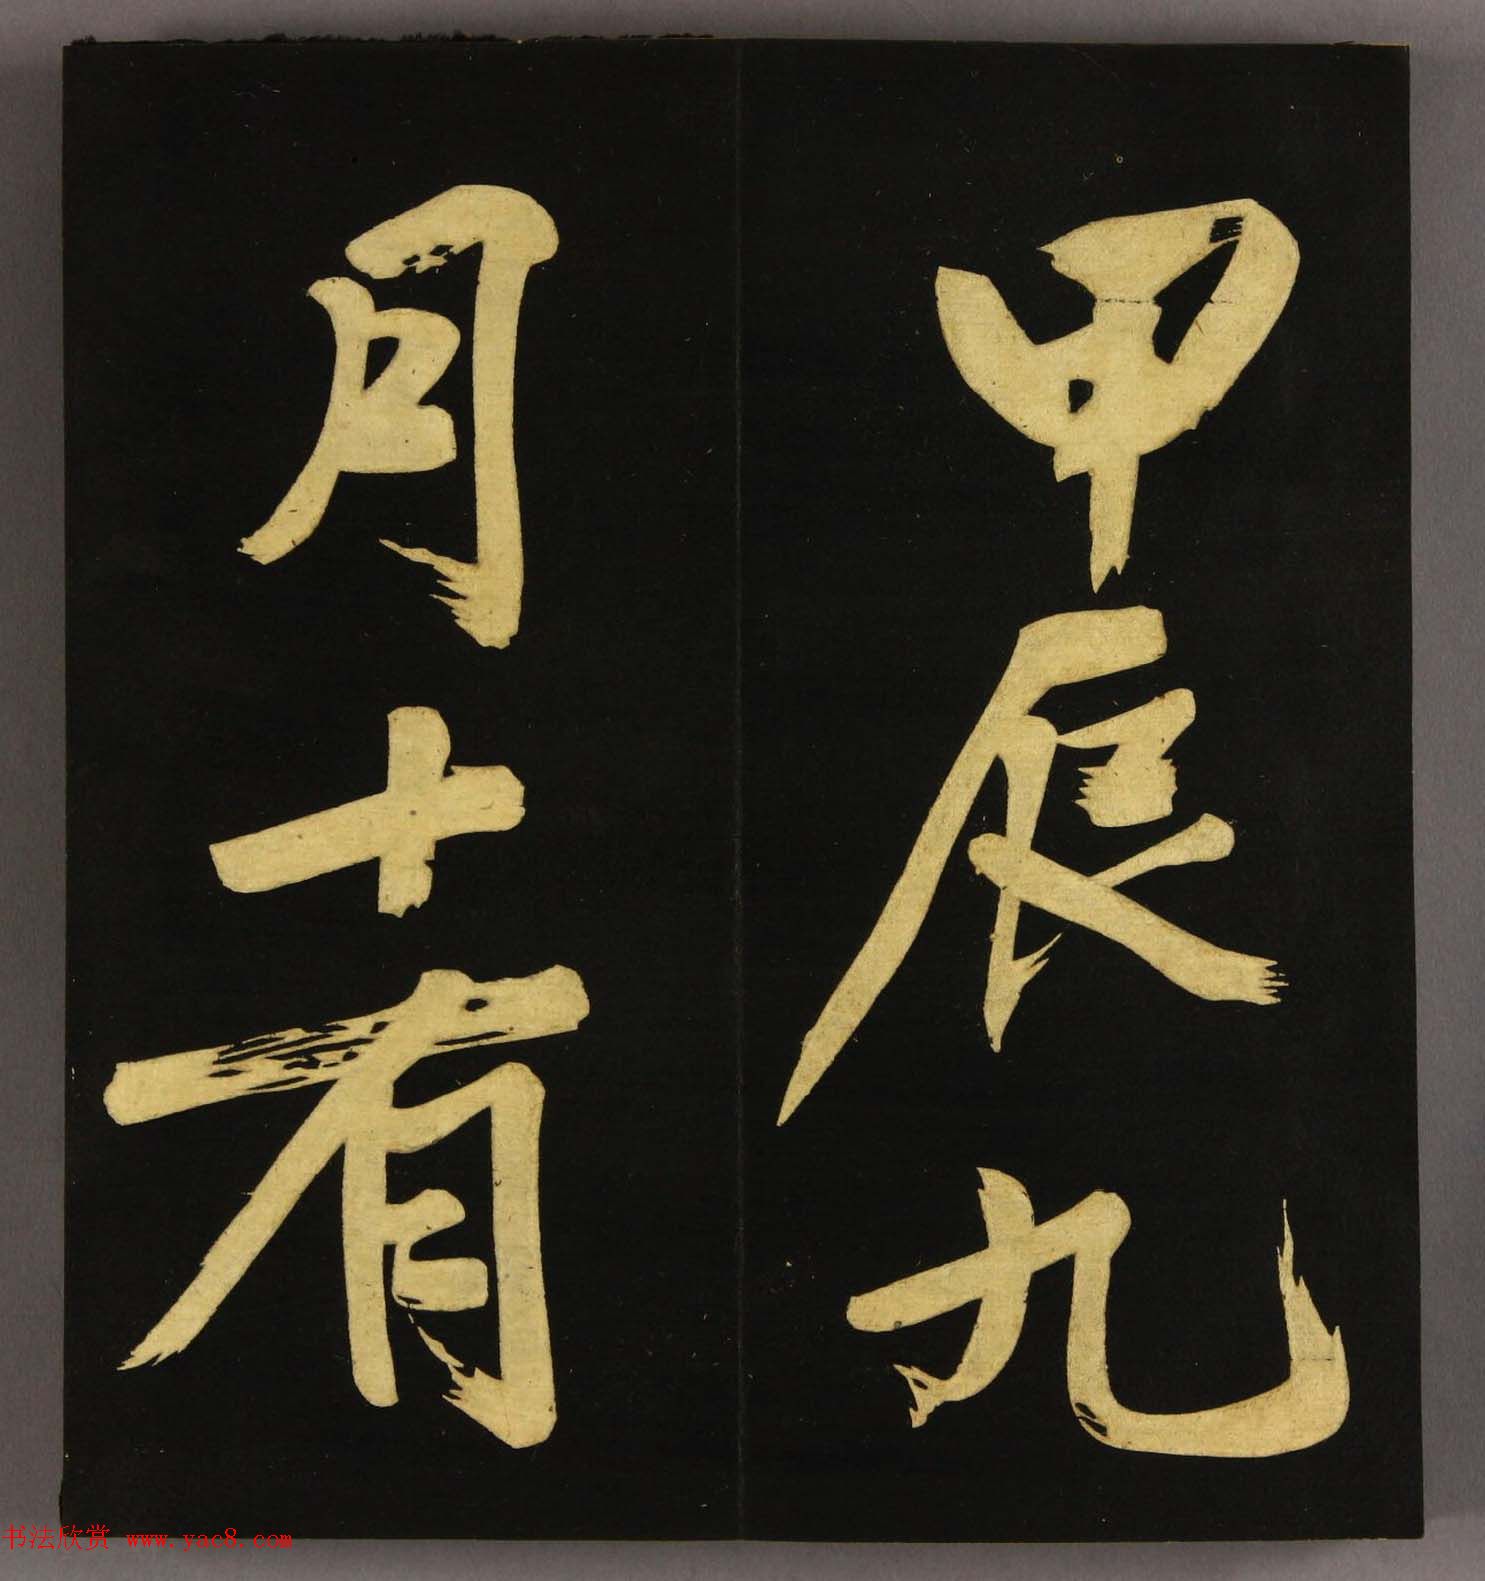 甲辰九
月十有
书法欣赏 www.yac8.com